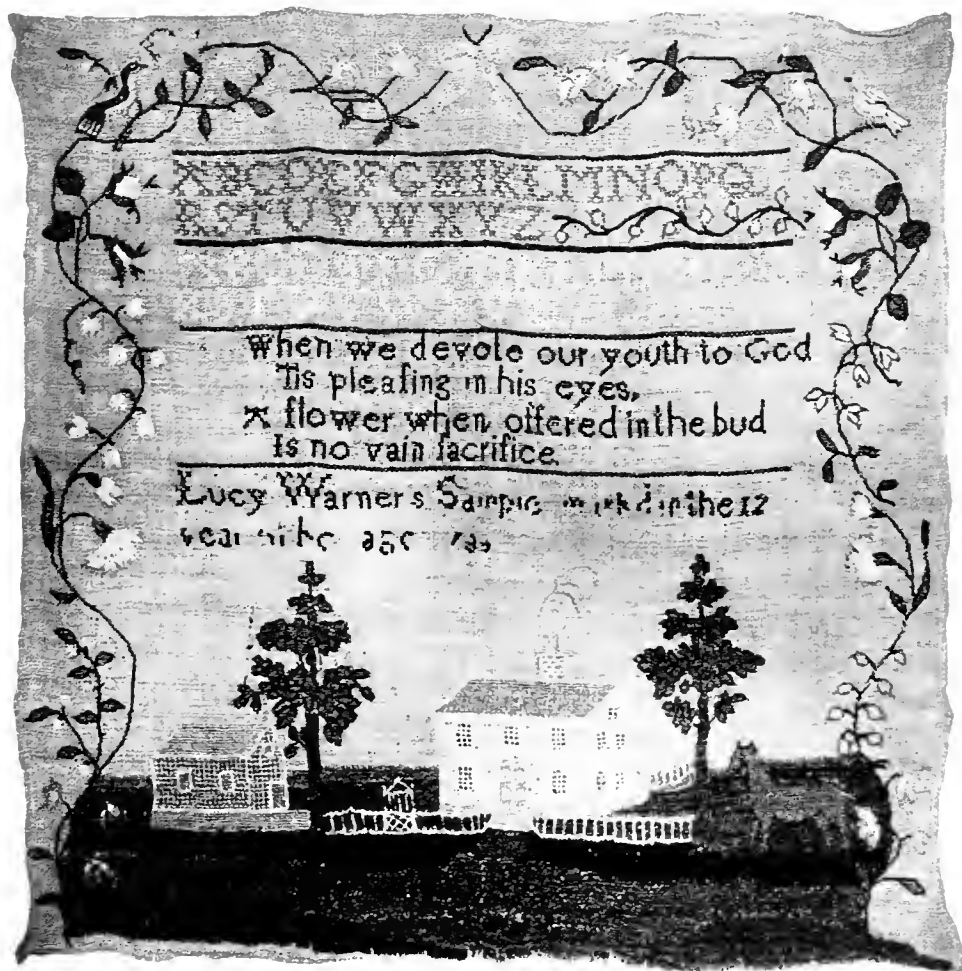 ABCDEFGHIKLMNOPQ
RSTUVWXYZ
When we devote our youth to God
Tis pleaſing in his eyes,
A flower when offered in the bud
Is no vain ſacrifice.
Lucy Warners Sampler in the 12
year age